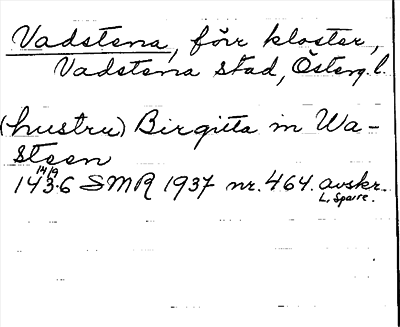 Vadstena, förr kloster,
Vadstena stad, Österg.l.
(hustru) Birgitta in Wa-
steen
14/9
1436 SMR 1937 nr. 464. avskr.
L. Sparre.